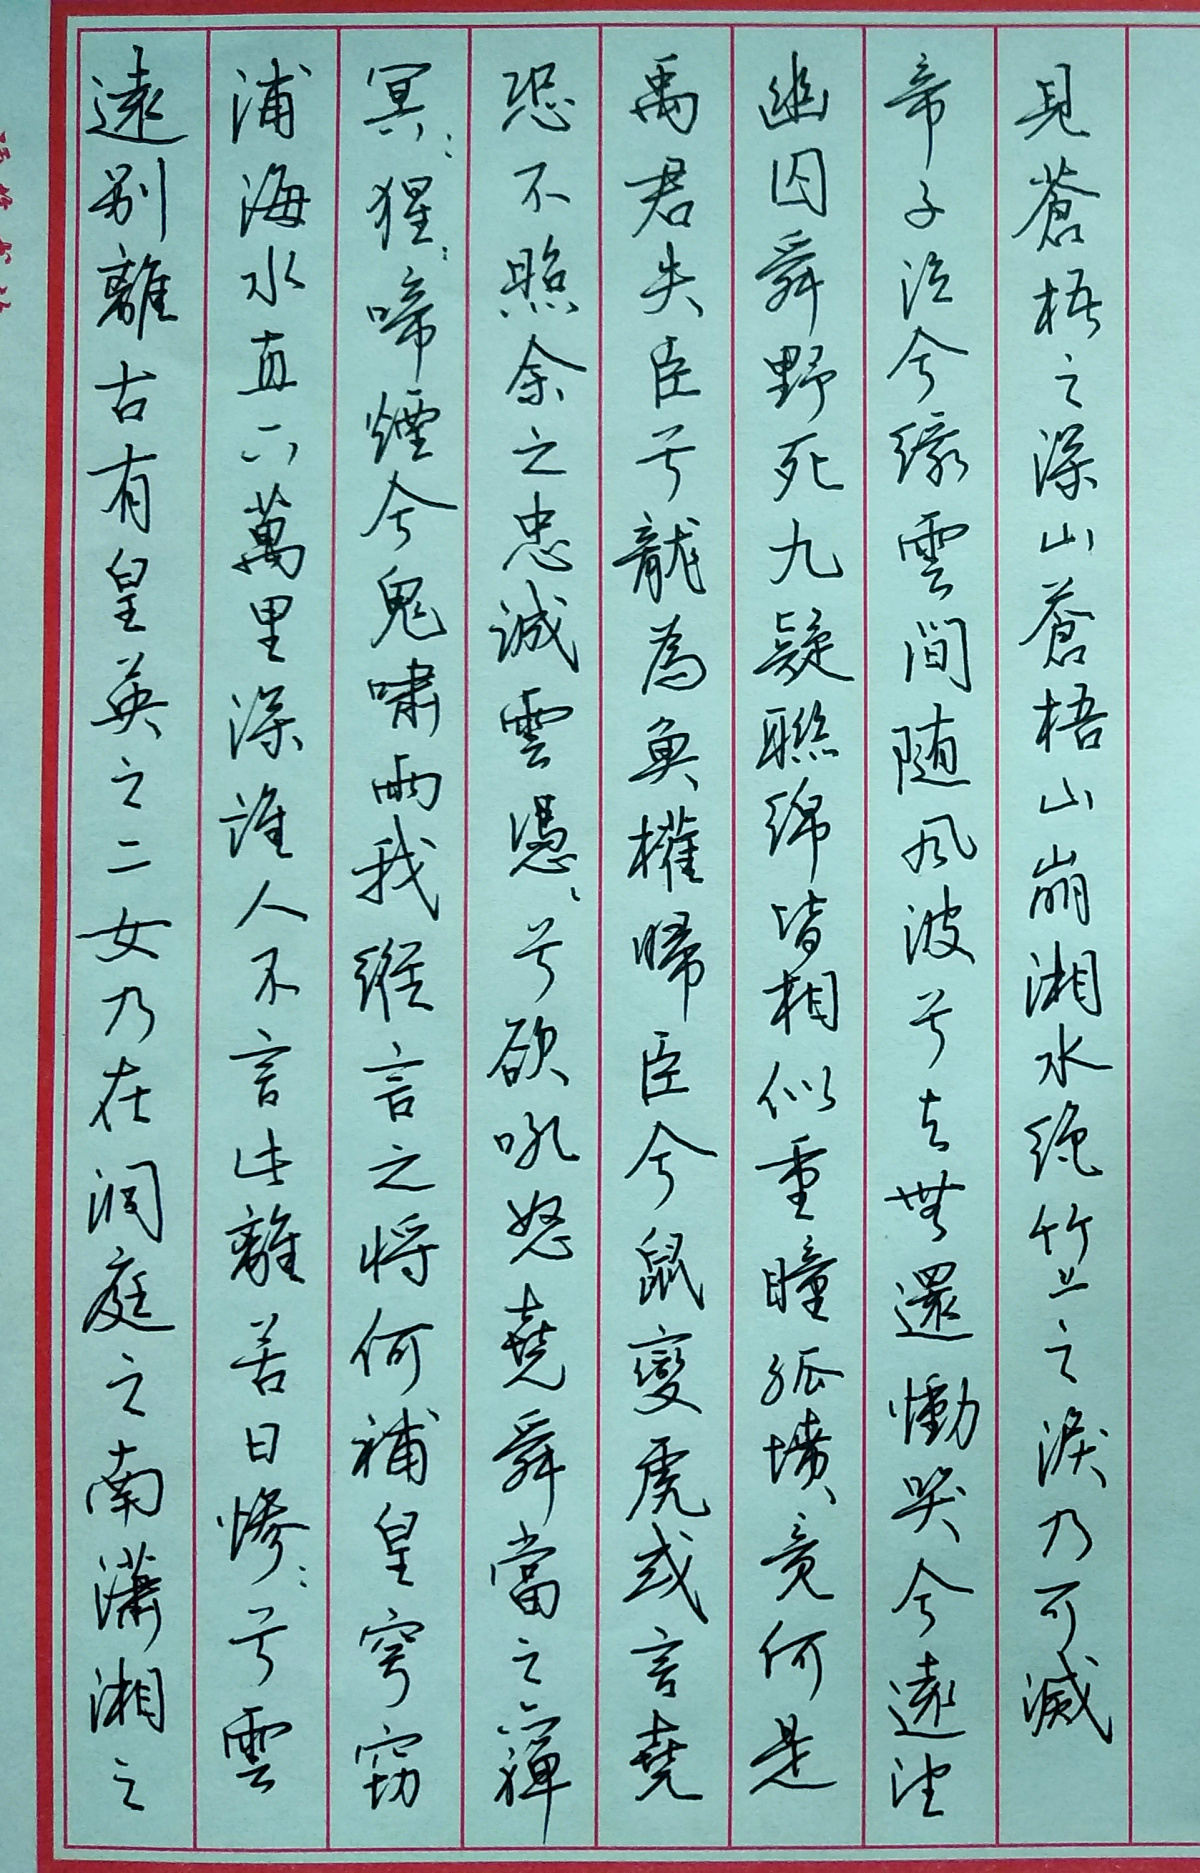 遠別離古有皇英之二女乃在洞庭之南瀟湘之
浦海水直下萬里深誰人不言此離苦日慘〻兮雲
冥〻猩〻啼煙兮鬼嘯雨我縱言之将何補皇穹竊
恐不照余之忠誠雲憑〻兮欲吼怒堯舜當之亦禪
禹君失臣兮龍為魚權歸臣兮鼠變虎或言堯
幽囚舜野死九疑聯綿皆相似重瞳孤墳竟何是
帝子泣兮綠雲間随風波兮去無還慟哭兮遠望
見蒼梧之深山蒼梧山崩湘水絕竹上之淚乃可滅